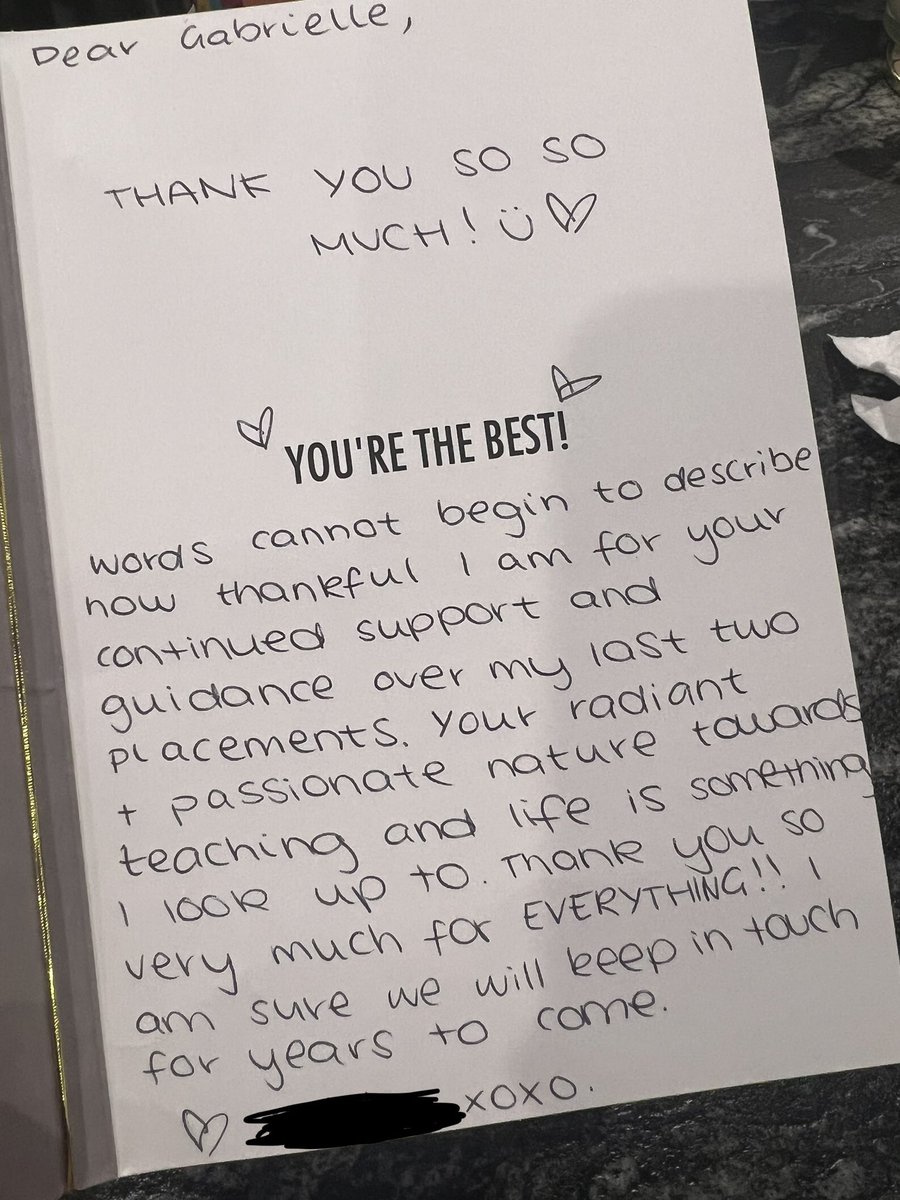 Dear Gabrielle,
THANK YOU SO SO
MUCH!
YOU'RE THE BEST!
words cannot begin to describe
how thankful I am for your
continued support and
guidance over my last two
placements. Your radiant
+ passionate nature towards
teaching and life is something
I look up to. Thank you so
very much for EVERYTHING!! I
am sure we will keep in touch
for years to come.
xoxo.